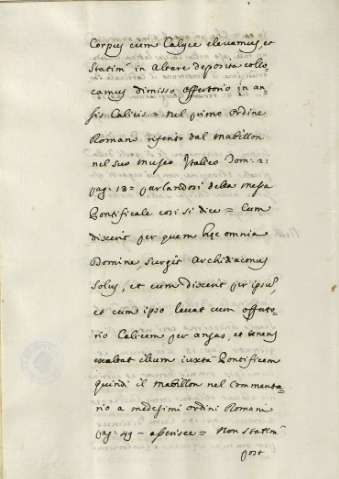 Corpus cum Calice elevamus, et
Statim in Altare deposita collo-
camus dimisso offertorio in an-
sis Calicis = nel primo ordine
Romano riferito dal Mabillon
nel suo museo Italico Tom: 2:
pag: 13 = parlandosi della messa
Pontificale cosi si dice = Cum
dixerit per quem hęc omnia
Domine, surgit Archidiaconus
solus, et cum dixerit per ipsum,
et cum ipso levat cum offerto-
rio Calicem per ansas, et tenens
exaltat illum iuxta Pontificem
quindi il Mabillon nel Commenta-
rio a medesimi ordini Romani
pag: 49 - asserisce = Non statim
post